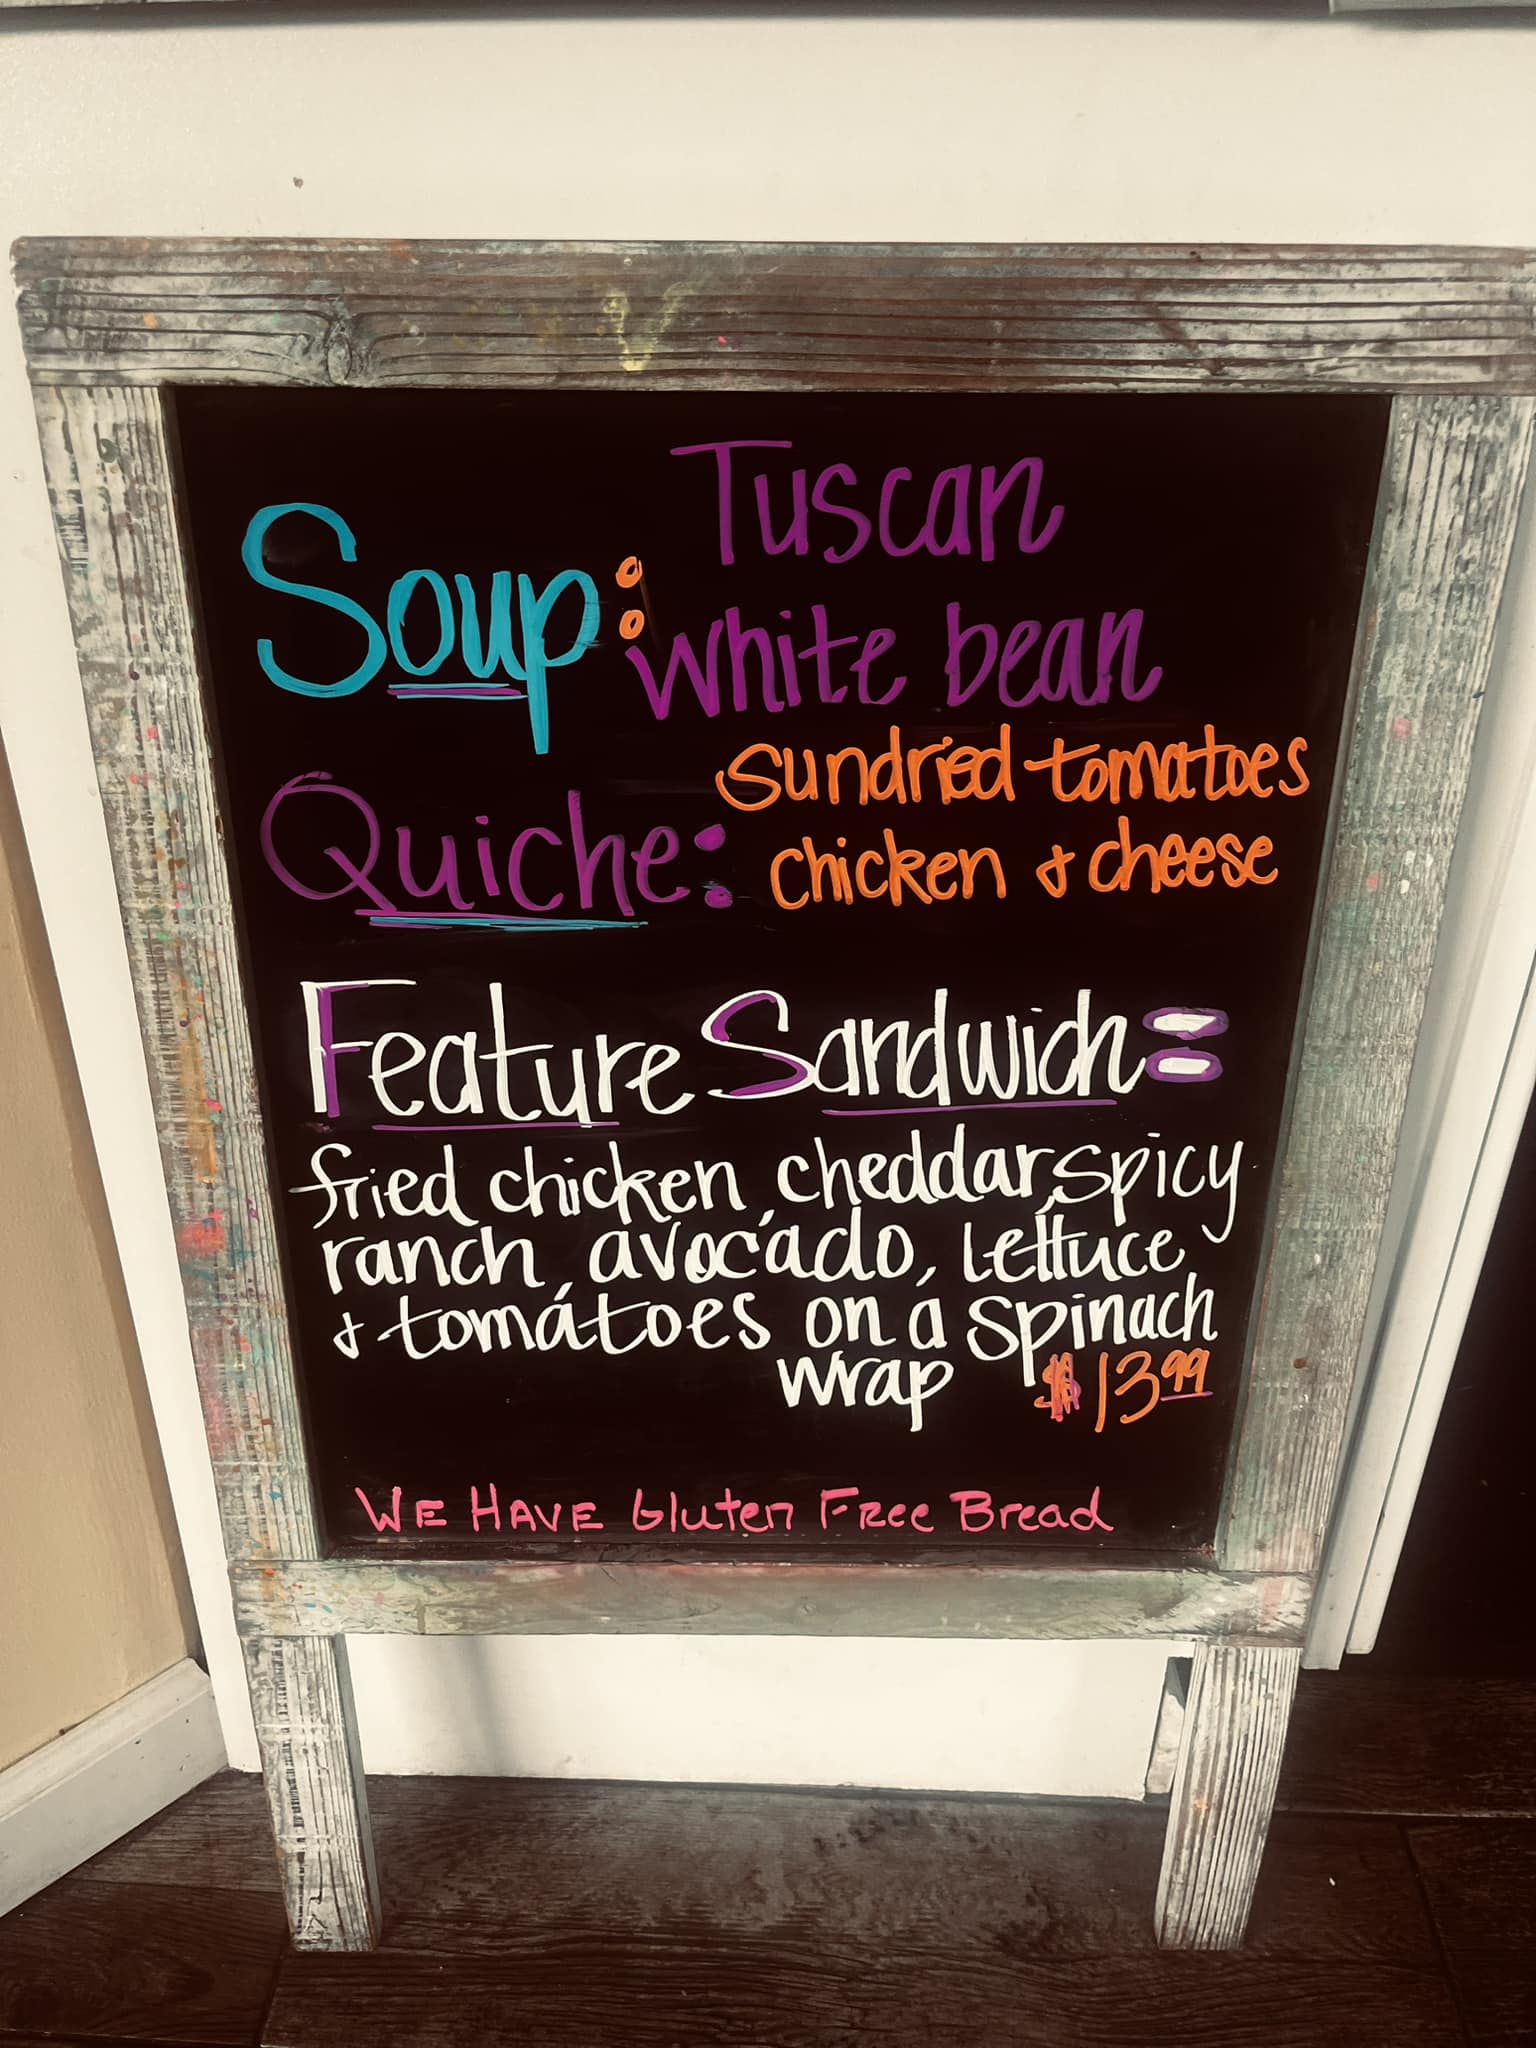 Soup: Tuscan
white bean
Quiche: Sundried tomatoes
chicken & cheese
Feature Sandwich:
fried chicken, cheddar, spicy
ranch, avocado, lettuce
& tomatoes on a spinach
wrap $13.99
WE HAVE Gluten Free Bread